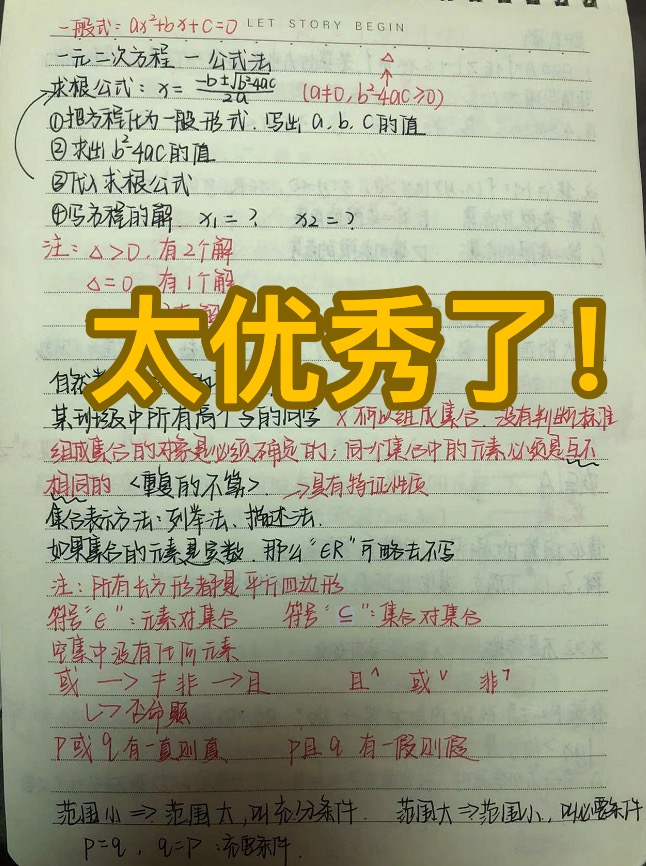 一般式：ax²+bx+c=0 LET STORY BEGIN
一元二次方程 — 公式法 △
求根公式：x=(-b±√b²-4ac)/2a (a≠0, b²-4ac≥0)
①把方程化为一般形式．写出 a, b, c 的值
②求出 b²-4ac 的值
③代入求根公式
④写方程的解．x₁=？ x₂=？
注：△>0, 有2个解
△=0, 有1个解
太优秀了！
自然
某班级中所有高个子的同学 × 不可以组成集合．没有判断标准
组成集合的对象是必须确定的；同一个集合中的元素必须是互不
相同的 <重复的不算>. →具有特征性质
集合表示方法：列举法、描述法．
如果集合的元素是实数．那么“∈R”可略去不写
注：所有长方形都是平行四边形
符号“∈”：元素对集合 符号“⊆”：集合对集合
空集中没有任何元素
或 —> 非 —>且 且^ 或v 非¬
↳否命题
P或q 有一真则真 p且q 有一假则假
范围小 => 范围大,叫充分条件． 范围大 => 范围小．叫必要条件
P=q, q=P：充要条件．